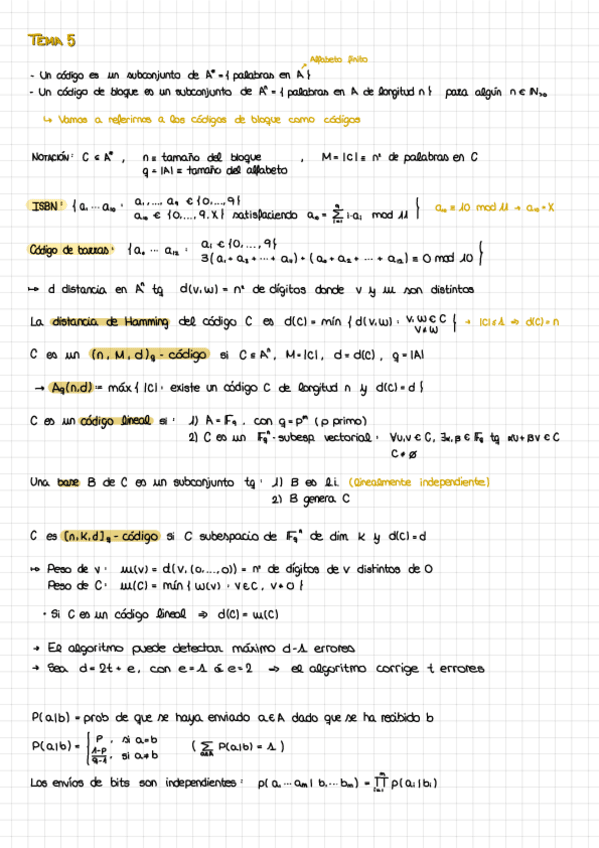 TEMA 5
Alfabeto finito
- Un código es un subconjunto de A* = { palabras en A }
- Un código de bloque es un subconjunto de Aⁿ = { palabras en A de longitud n } para algún n ∈ ℕ>0
↳ Vamos a referirnos a los códigos de bloque como códigos
NOTACIÓN: C ⊆ Aⁿ , n ≡ tamaño del bloque , M = |C| ≡ nº de palabras en C
q = |A| ≡ tamaño del alfabeto
ISBN: { a₁ ... a₁₀ : a₁, ..., a₉ ∈ {0, ..., 9}
a₁₀ ∈ {0, ..., 9, X} satisfaciendo a₁₀ ≡ Σ i·aᵢ mod 11 } a₁₀ ≡ 10 mod 11 → a₁₀ = X
Código de barras: { a₁ ... a₁₂ : aᵢ ∈ {0, ..., 9}
3(a₁ + a₃ + ... + a₁₁) + (a₂ + a₄ + ... + a₁₂) ≡ 0 mod 10 }
↦ d distancia en Aⁿ tq d(v,w) = nº de dígitos donde v y w son distintos
La distancia de Hamming del código C es d(C) = mín { d(v,w) : v,w ∈ C
v ≠ w } → |C| ≤ 1 ⇒ d(C) = n
C es un (n, M, d)q - código si C ⊆ Aⁿ, M = |C|, d = d(C), q = |A|
→ Aq(n,d) := máx { |C| : existe un código C de longitud n y d(C) = d }
C es un código lineal si : 1) A = 𝔽q , con q = pᵐ (p primo)
2) C es un 𝔽qⁿ - subesp. vectorial : ∀u,v ∈ C, ∃α,β ∈ 𝔽q tq αu + βv ∈ C
C ≠ ∅
Una base B de C es un subconjunto tq : 1) B es l.i. (linealmente independiente)
2) B genera C
C es [n, K, d]q - código si C subespacio de 𝔽qⁿ de dim k y d(C) = d
↦ Peso de v : w(v) = d(v, (0, ..., 0)) = nº de dígitos de v distintos de 0
Peso de C : w(C) = mín { w(v) : v ∈ C, v ≠ 0 }
· Si C es un código lineal ⇒ d(C) = w(C)
→ El algoritmo puede detectar máximo d-1 errores
→ Sea d = 2t + e, con e = 1 ó e = 2 ⇒ el algoritmo corrige t errores
P(a|b) = prob de que se haya enviado a ∈ A dado que se ha recibido b
P(a|b) = { p , si a = b
(1-p)/(q-1) , si a ≠ b ( Σ P(a|b) = 1 )
Los envíos de bits son independientes : p(a₁ ... aₘ | b₁ ... bₘ) = ∏ p(aᵢ | bᵢ)